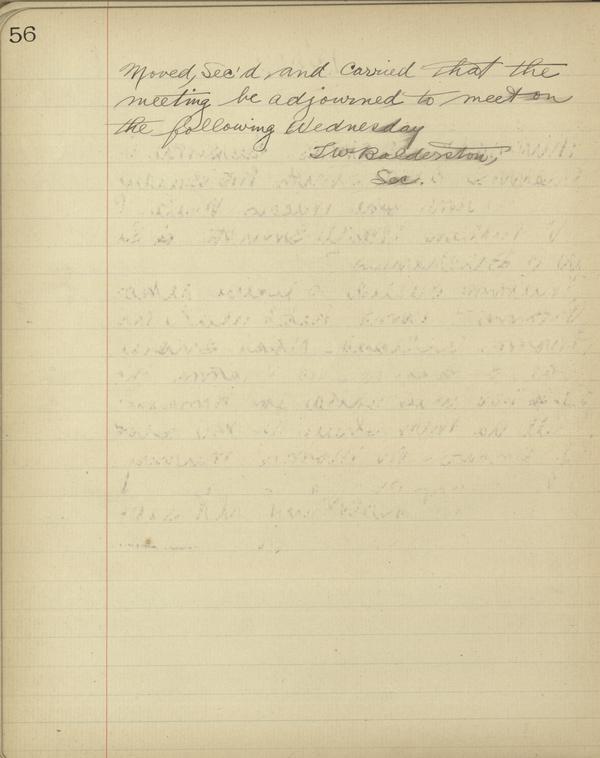 56
Moved, Sec'd and Carried that the
meeting be adjourned to meet on
the following Wednesday
T.W. Balderston,
Sec.